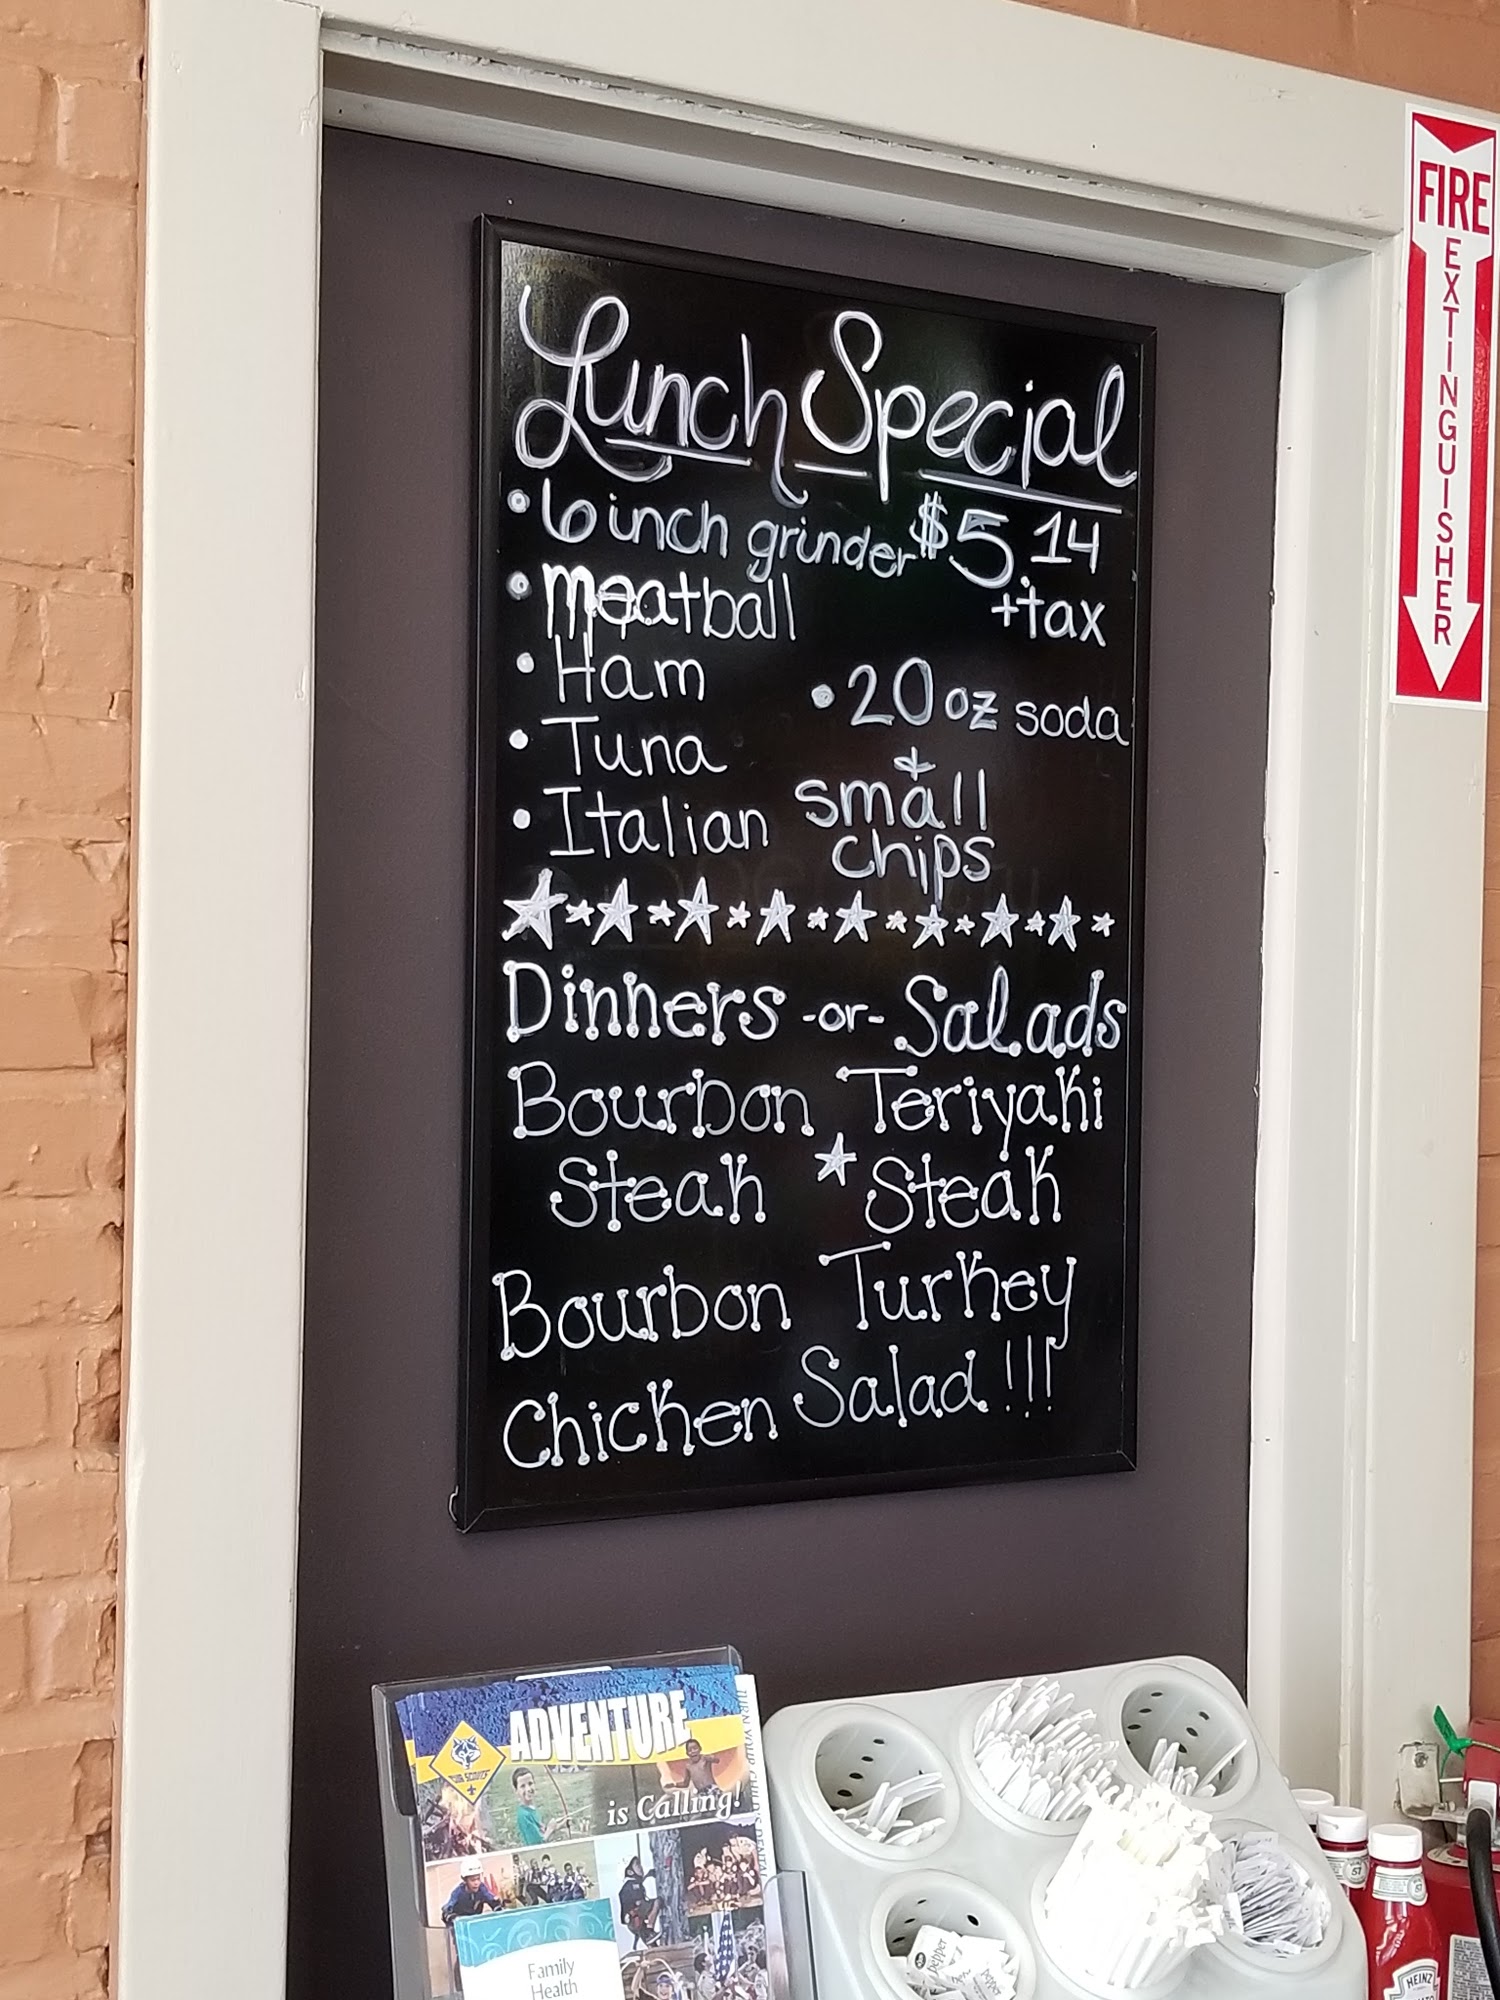 Lunch Special
• 6 inch grinder $5.14
+tax
• meatball
• Ham
• Tuna
• Italian
• 20 oz soda
+
small
chips
Dinners -or- Salads
Bourbon Teriyaki
Steak Steak
Bourbon Turkey
Chicken Salad!!!
FIRE
EXTINGUISHER
ADVENTURE
is Calling!
CUB SCOUTS
Family
Health
pepper
HEINZ